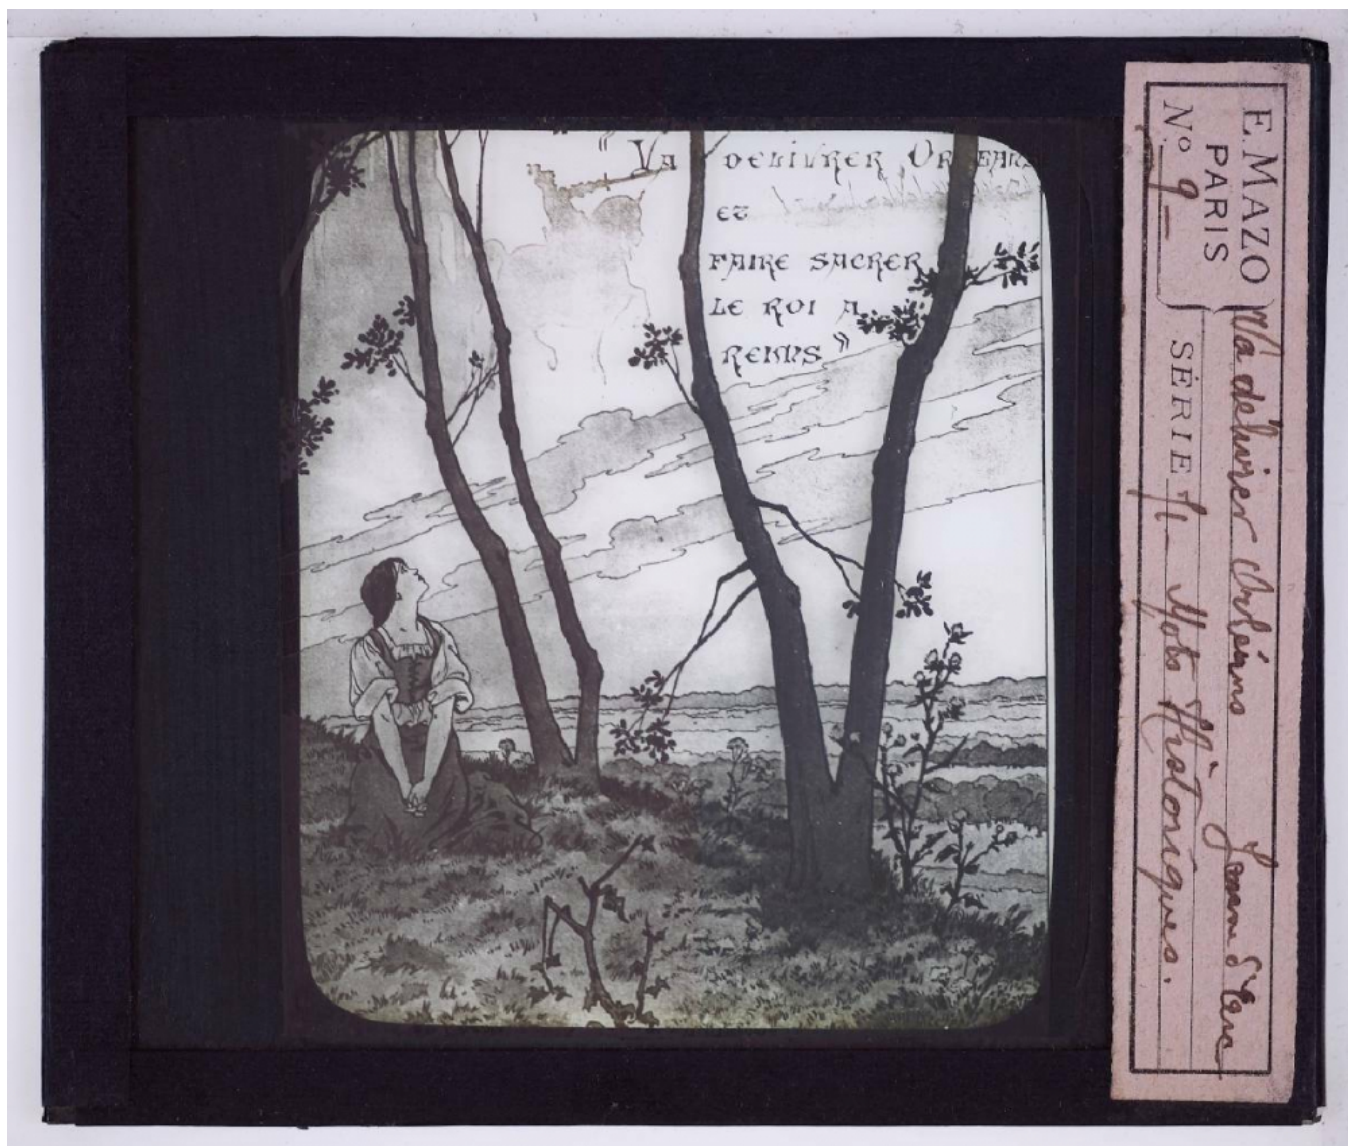 " VA DELIVRER ORLEANS
ET
FAIRE SACRER
LE ROI A
REIMS "
E. MAZO
PARIS
Nº 9
SÉRIE
Va délivrer Orléans
Jeanne d'Arc
Mots Historiques.